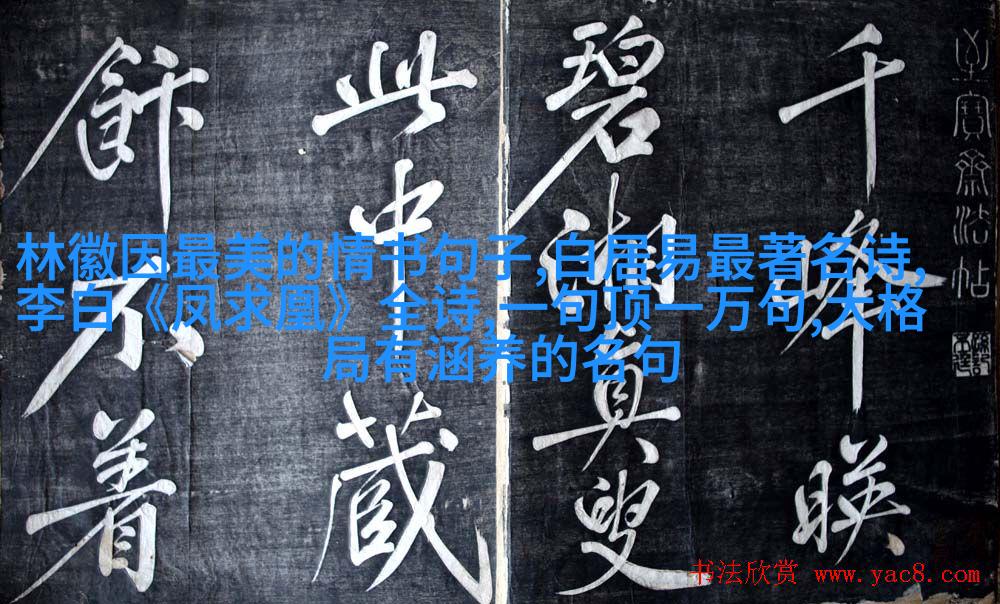 至寶齋法帖
千峯暎
碧湖真叟
此中藏
飰不着
林徽因最美的情书句子,白居易最著名诗,
李白《凤求凰》全诗,一句顶一万句,大格
局有涵养的名句
书法欣赏 www.yac8.com